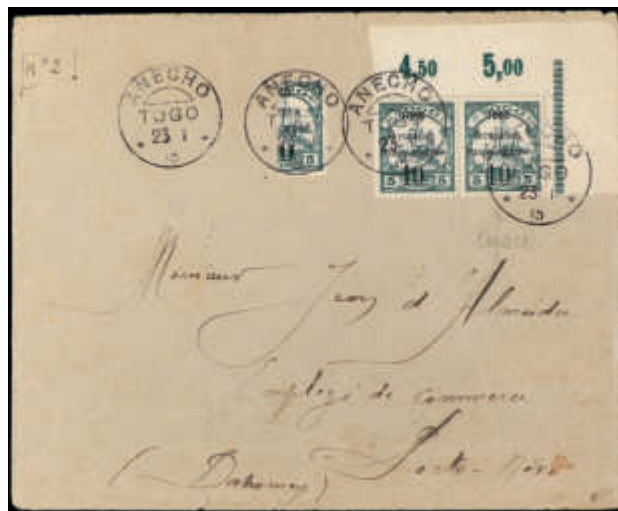 4,50 5,00
N° 2
ANECHO
TOGO
23 1
15
ANECHO
ANECHO
23
15
5 5
10 10
5 5 5 5
Monsieur Jean d'Almeida
Employé de commerce
Porto-Novo
(Dahomey)